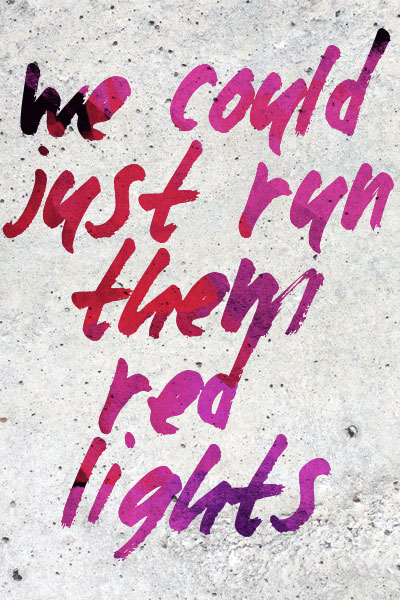 we could
just run
them
red
lights